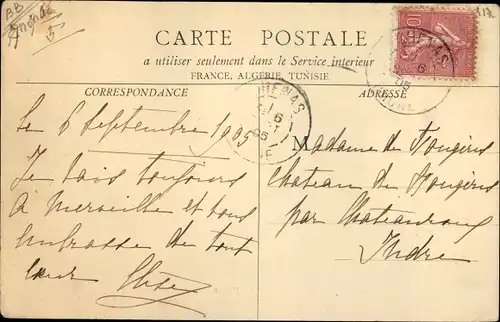 BB
117
CARTE POSTALE
a utiliser seulement dans le Service intérieur
FRANCE, ALGERIE, TUNISIE
CORRESPONDANCE
ADRESSE
10
6
05
6
05
le 6 Septembre 1905
Je vais toujours
à Merveille et vous
embrasse de tout
cœur
Madame de Fougères
Chateau de Fougères
par Chateauroux
Indre